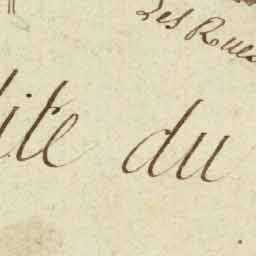 Les Rues
ite du